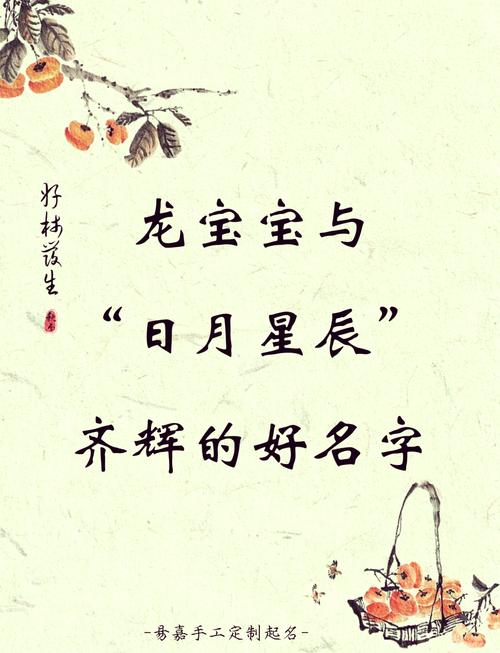 龙宝宝与
“日月星辰”
齐辉的好名字
-易嘉手工定制起名-